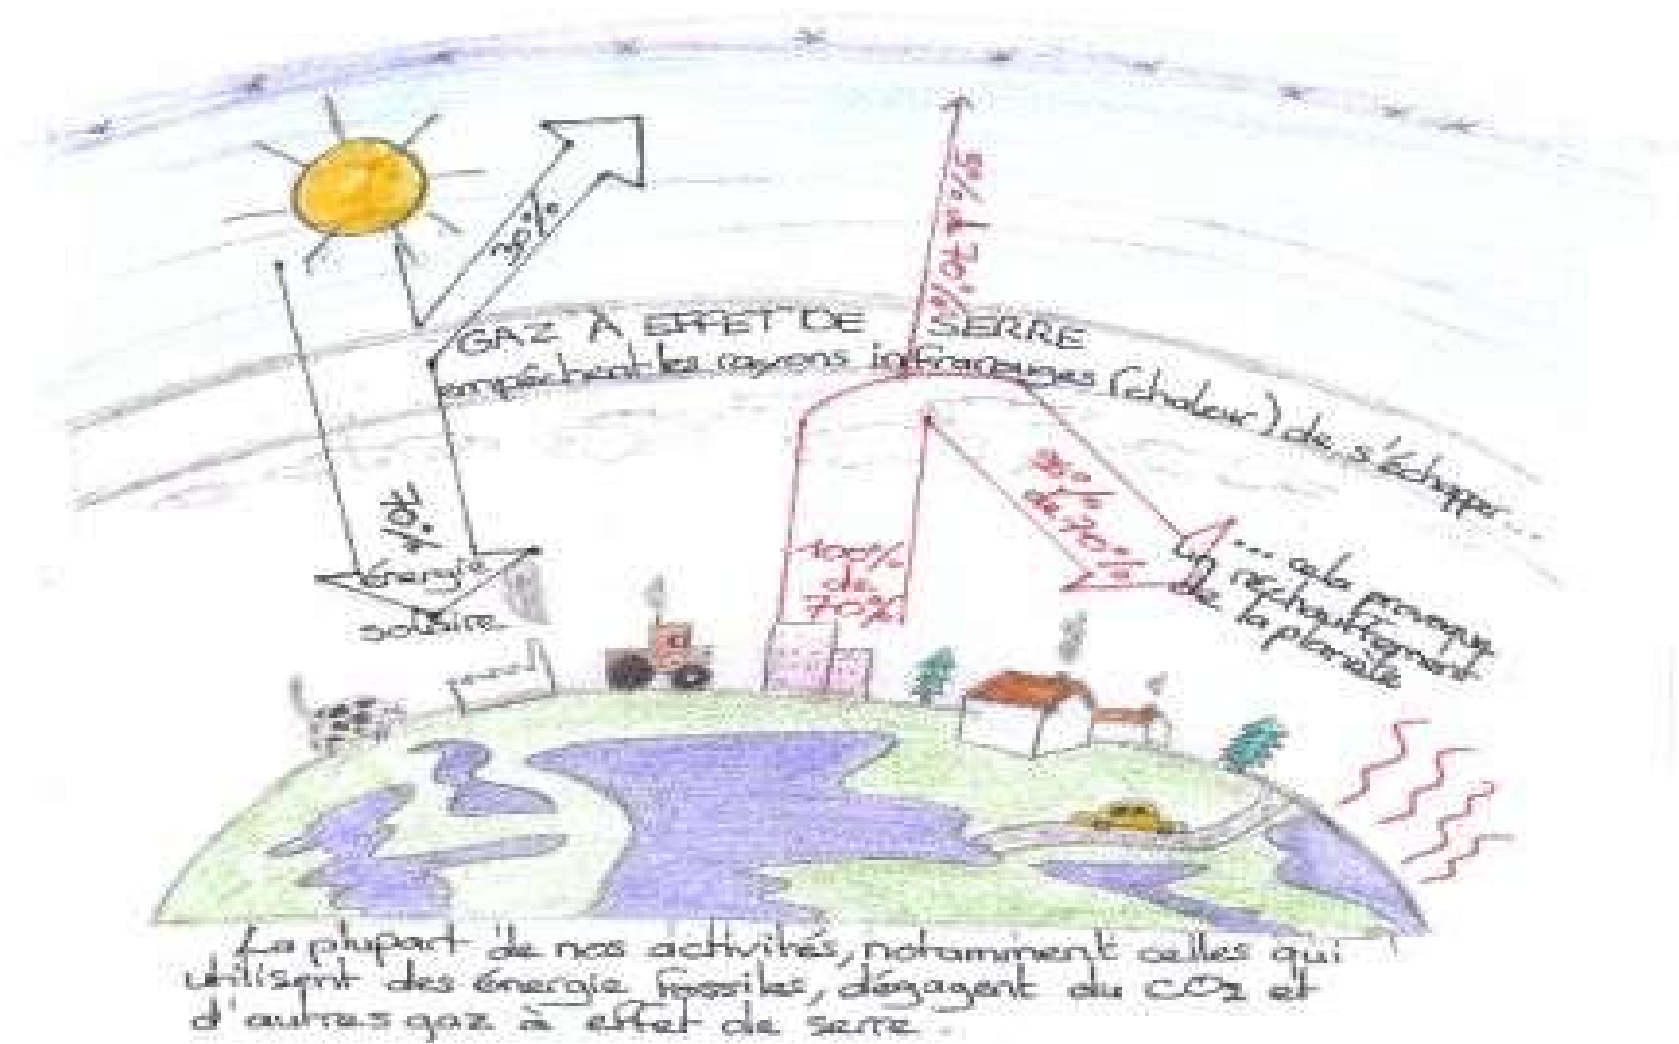 30%
GAZ À EFFET DE SERRE
empêchent les rayons infrarouges (chaleur) de s'échapper...
70%
énergie
solaire
100%
de
70%
95%
de 70%
... cela provoque
un réchauffement
de la planète
La plupart de nos activités, notamment celles qui
utilisent des énergie fossiles, dégagent du CO2 et
d'autres gaz à effet de serre.